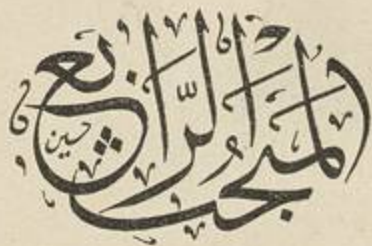 المجلد الرابع
حسين